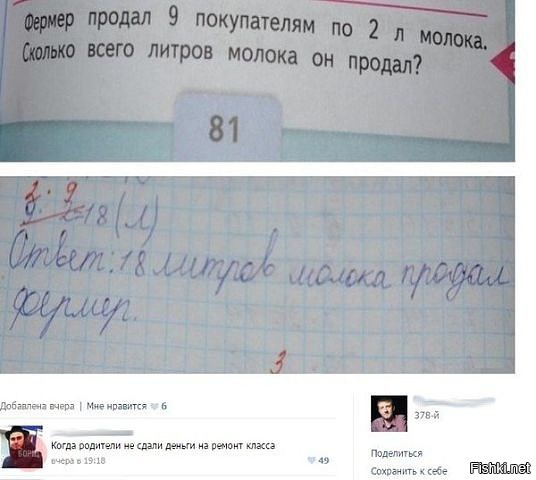 Фермер продал 9 покупателям по 2 л молока.
Сколько всего литров молока он продал?
81
2 · 9
9 · 2=18 (л)
Ответ: 18 литров молока продал
фермер.
3
Добавлена вчера | Мне нравится 6
Когда родители не сдали деньги на ремонт класса
вчера в 19:18
49
378-й
Поделиться
Сохранить к себе
Fishki.net